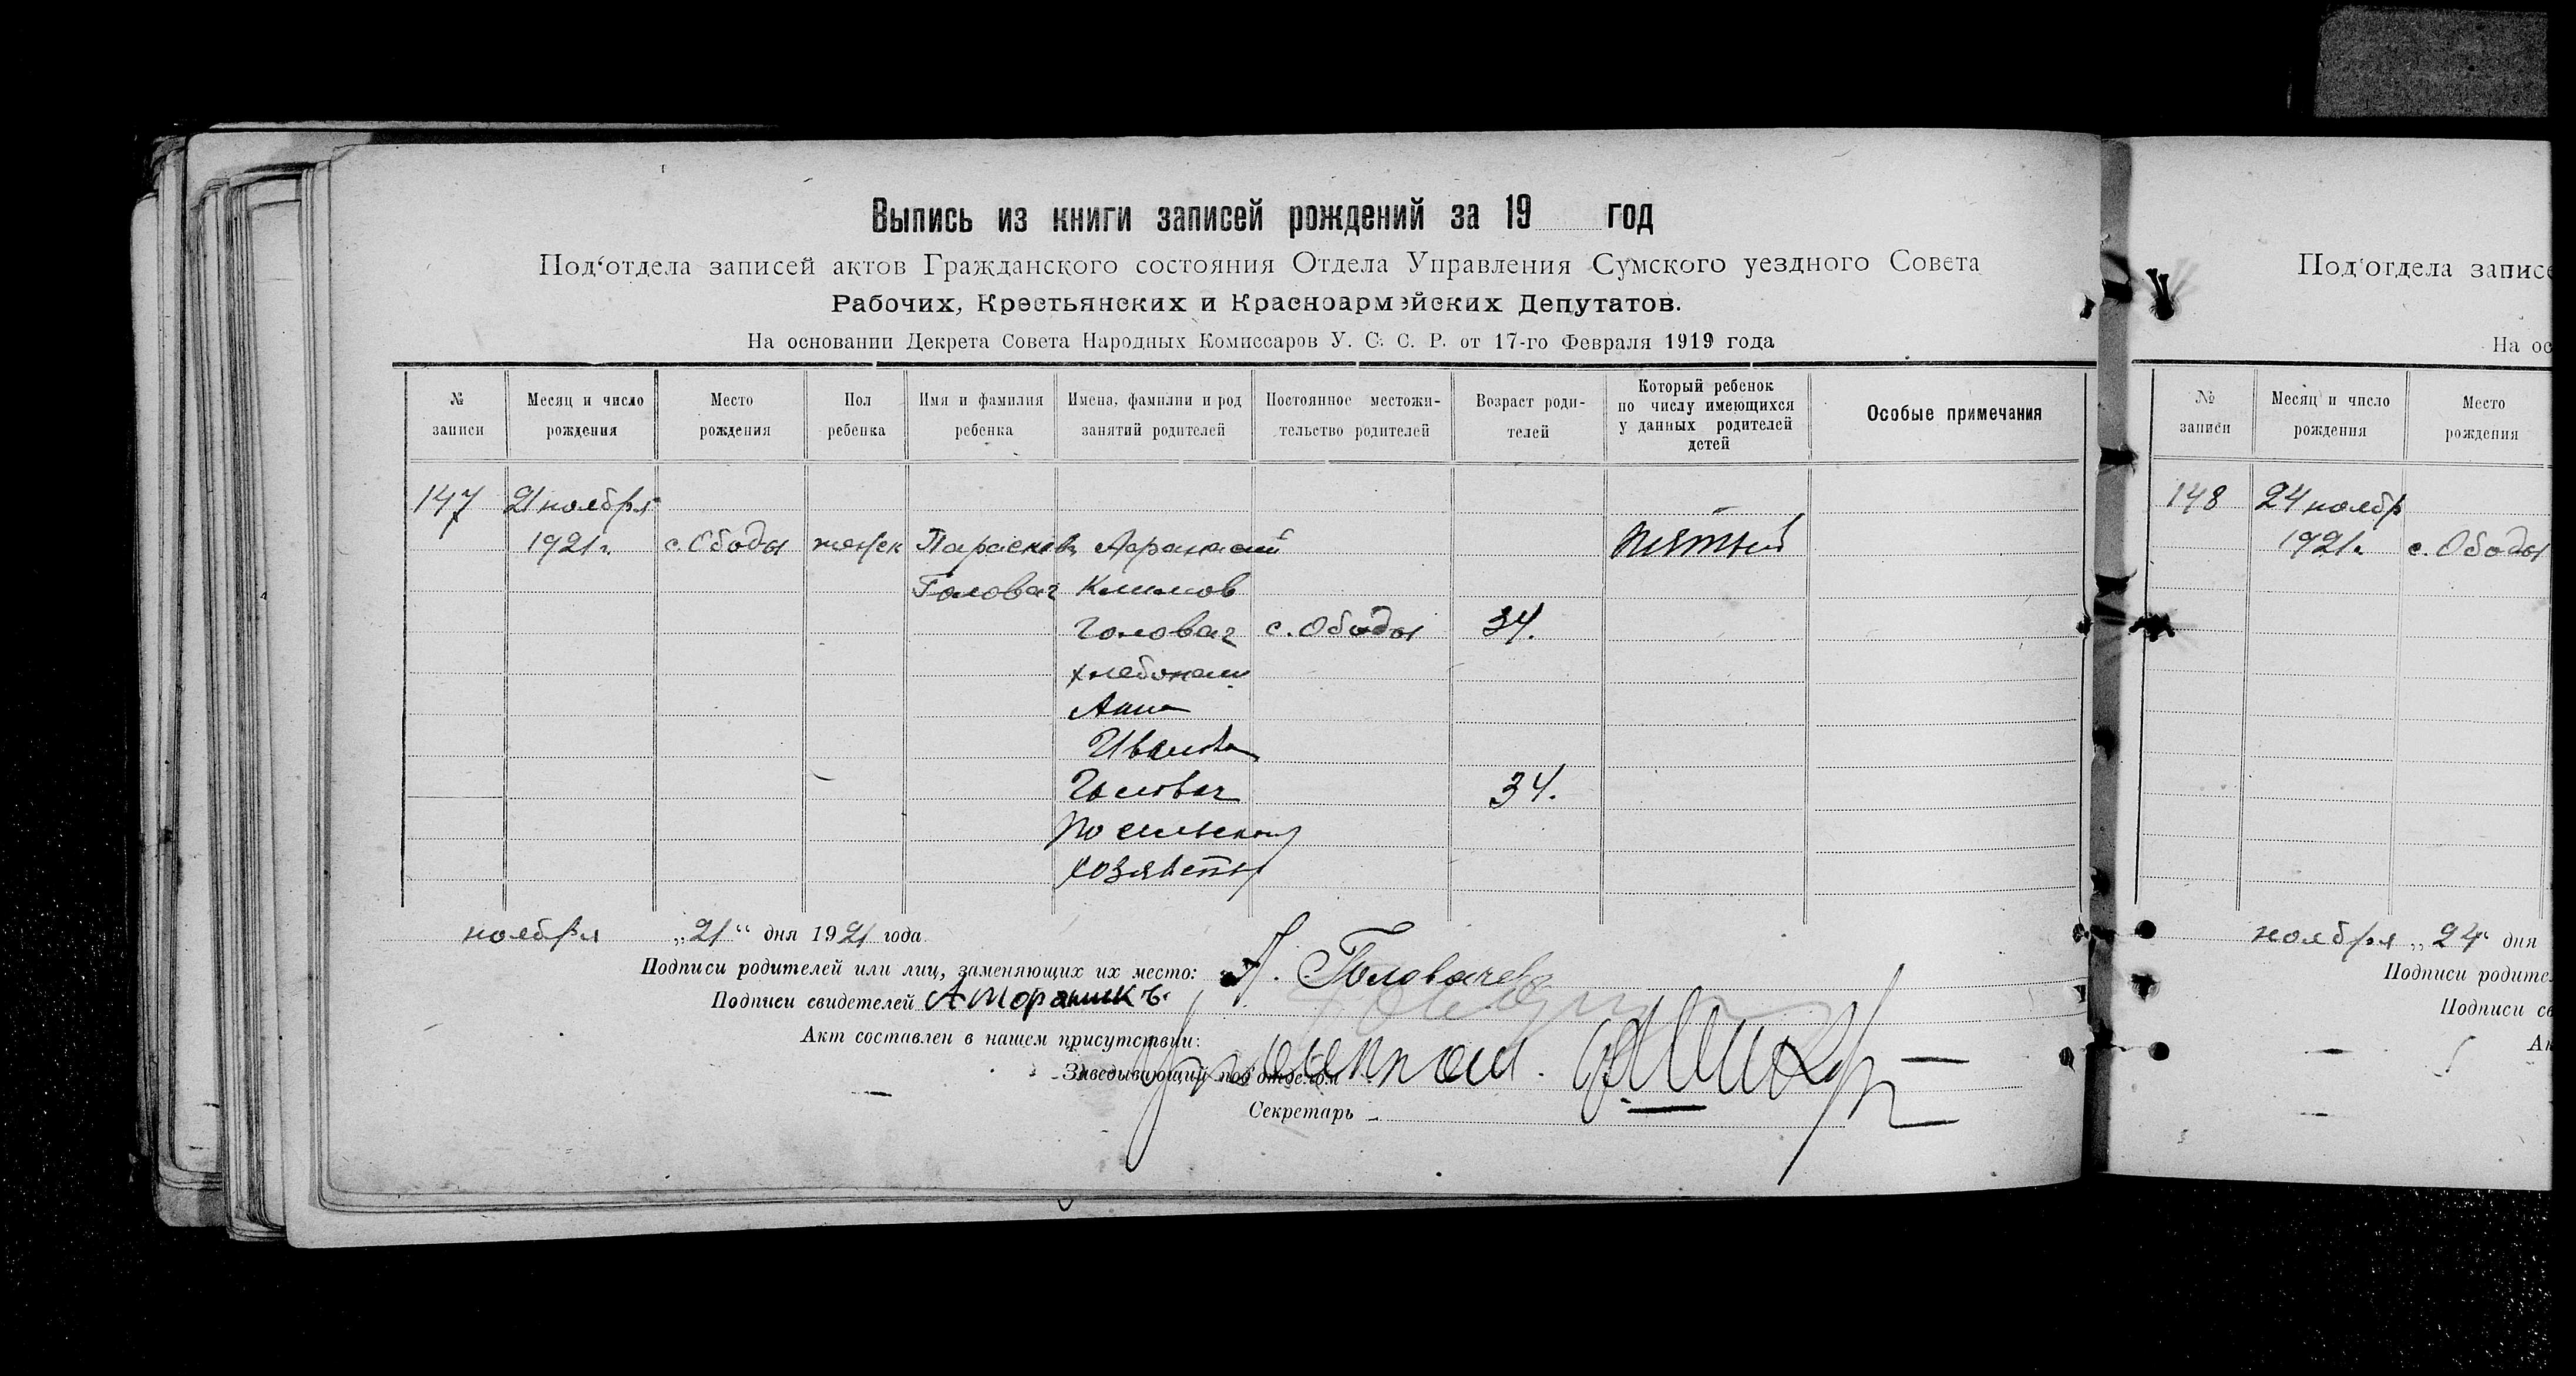 Выпись из книги записей рождений за 19 год
Под‘отдела записей актов Гражданского состояния Отдела Управления Сумского уездного Совета
Рабочих, Крестьянских и Красноармейских Депутатов.
На основании Декрета Совета Народных Комиссаров У. С. С. Р. от 17-го Февраля 1919 года
№ записи
Месяц и число рождения
Место рождения
Пол ребенка
Имя и фамилия ребенка
Имена, фамилии и род занятий родителей
Постоянное местожи-тельство родителей
Возраст роди-телей
Который ребенок по числу имеющихся у данных родителей детей
Особые примечания
147 21 ноября
1921 г. с. Ободы женск Параскева Афанасий пятый
Головач Климов
Головач с. Ободы 34.
хлебопаш
Анна
Иванова
Головач 34.
по сельскому
хозяйству
ноября „21“ дня 1921 года
Подписи родителей или лиц, заменяющих их место: А. Головачев
Подписи свидетелей
Акт составлен в нашем присутствии:
Заведывающий под‘отделом
Секретарь
Под‘отдела записе
На ос
№ записи
Месяц и число рождения
Место рождения
148 24 ноябр
1921 г. с. Ободы
ноября „24“ дня
Подписи родите
Подписи св
Ак